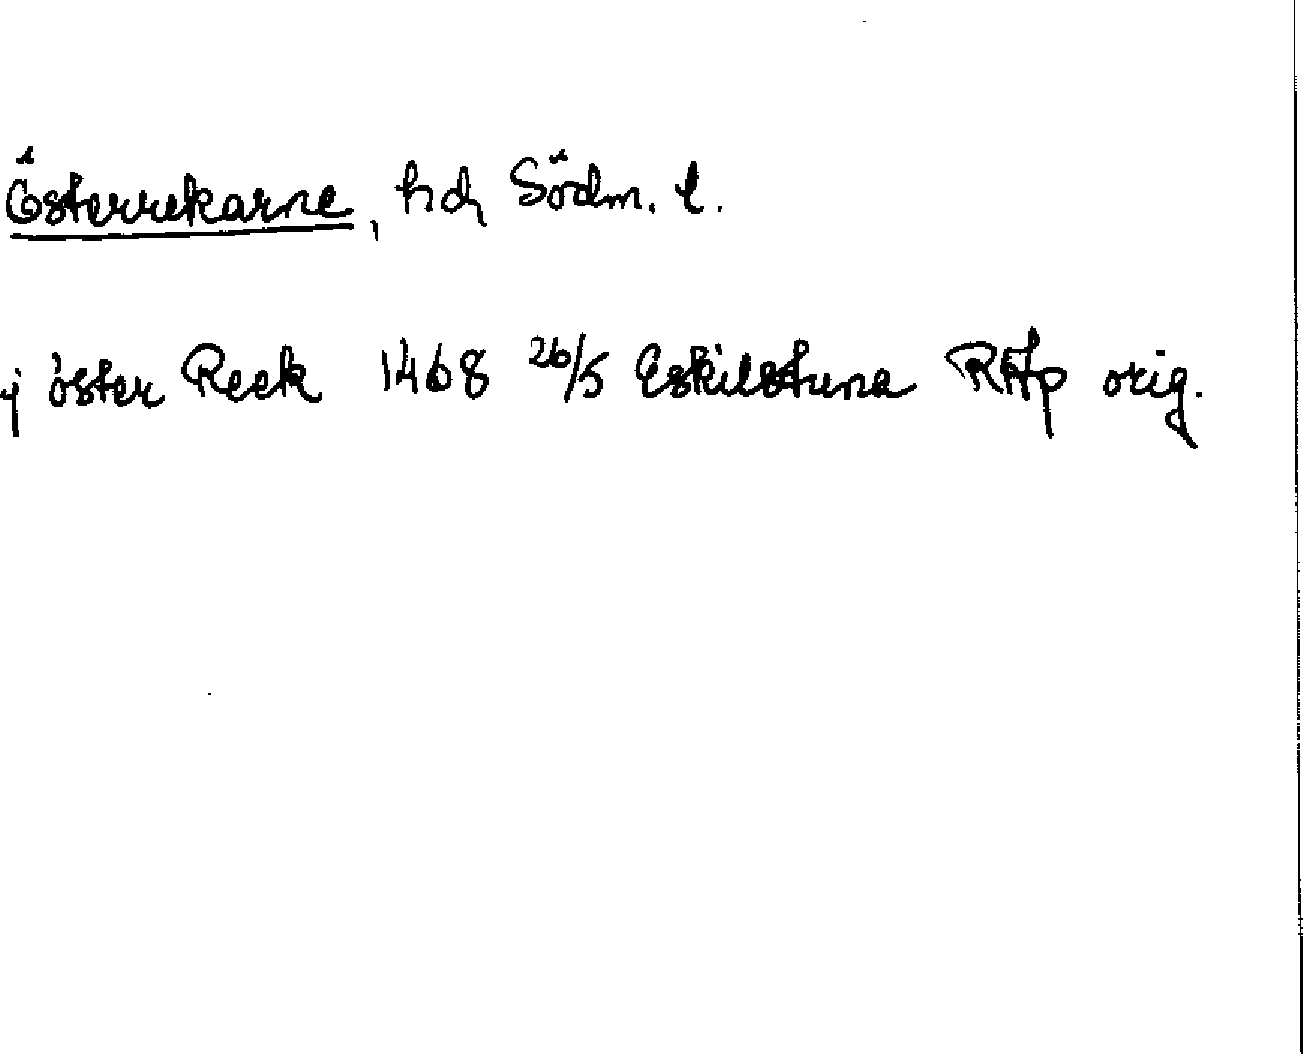 Österrekarne, hd, Södm. l.
j öster Reek 1468 26/5 Eskilstuna RAp orig.